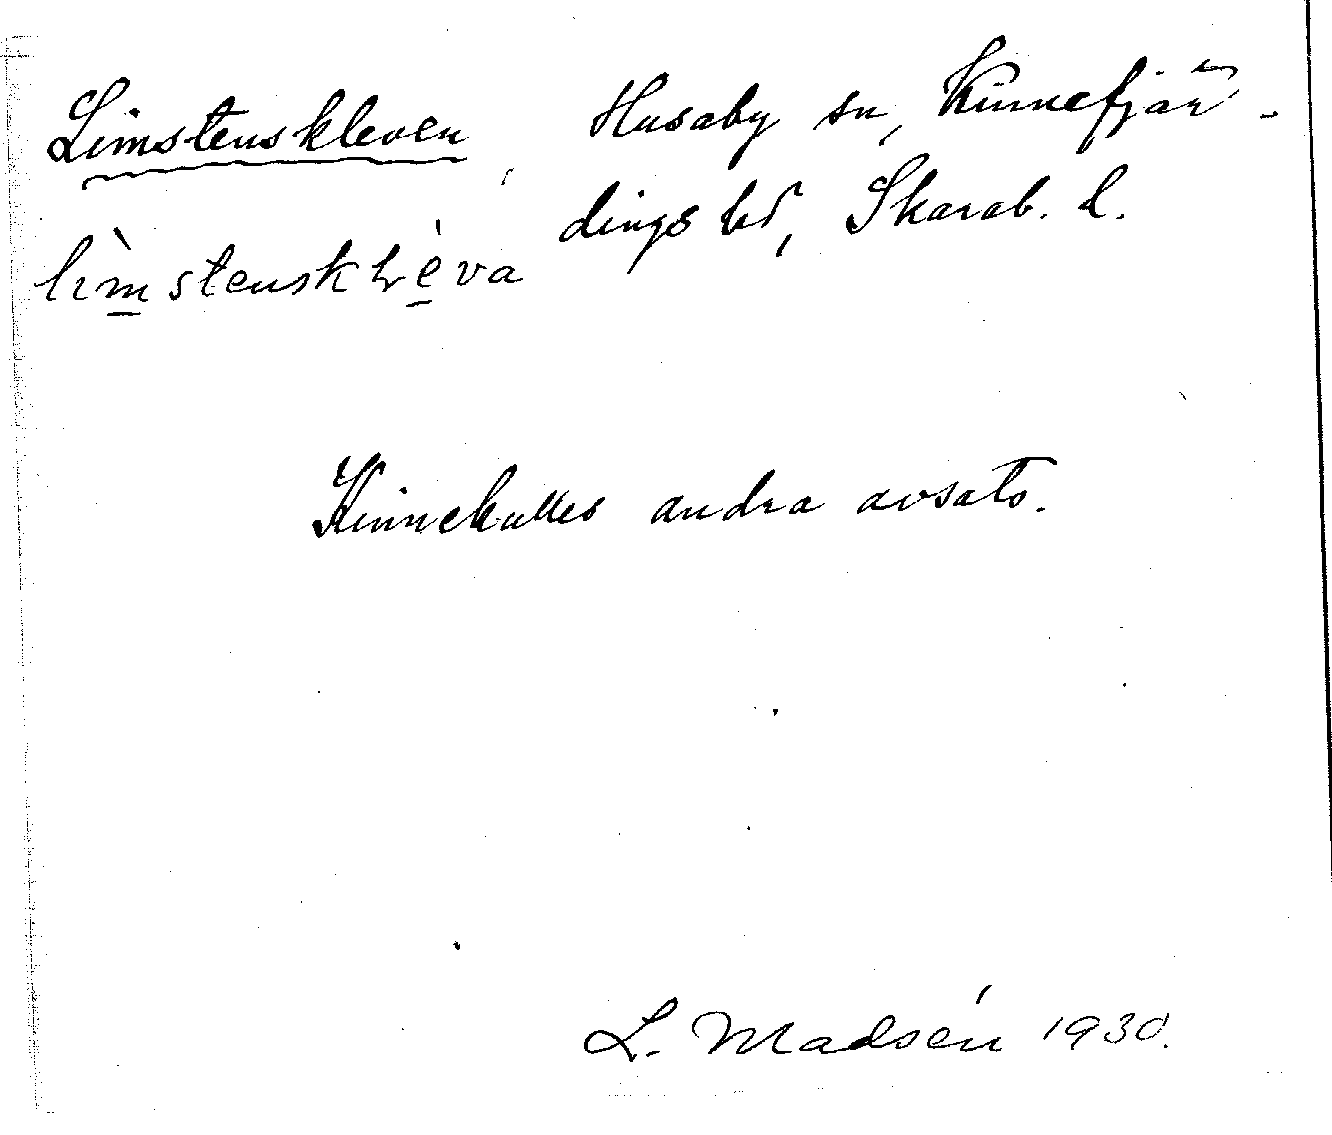 Limstenskleven, Husaby sn, Kinnefjär-
dings hd, Skarab. l.
lìmstensklèva
Kinnekulles andra avsats.
L. Madsén 1930.